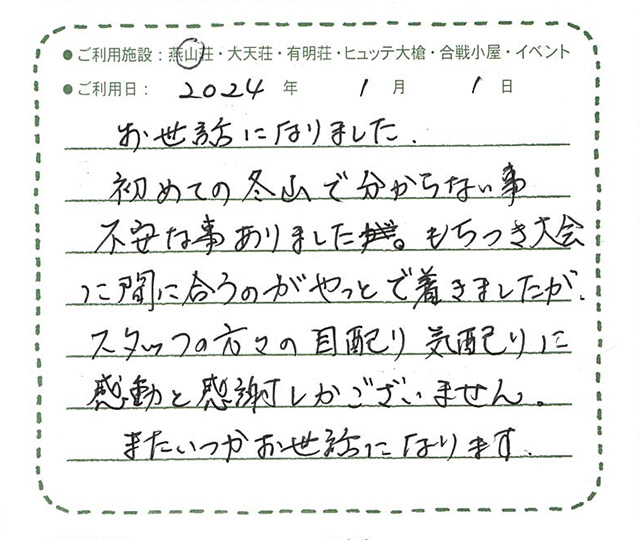 ●ご利用施設：燕山荘・大天荘・有明荘・ヒュッテ大槍・合戦小屋・イベント
●ご利用日： 2024 年 1 月 1 日
お世話になりました.
初めての冬山で分からない事
不安な事ありました。もちつき大会
に間に合うのがやっとで着きましたが.
スタッフの方々の目配り 気配りに
感動と感謝しかございません。
またいつかお世話になります.